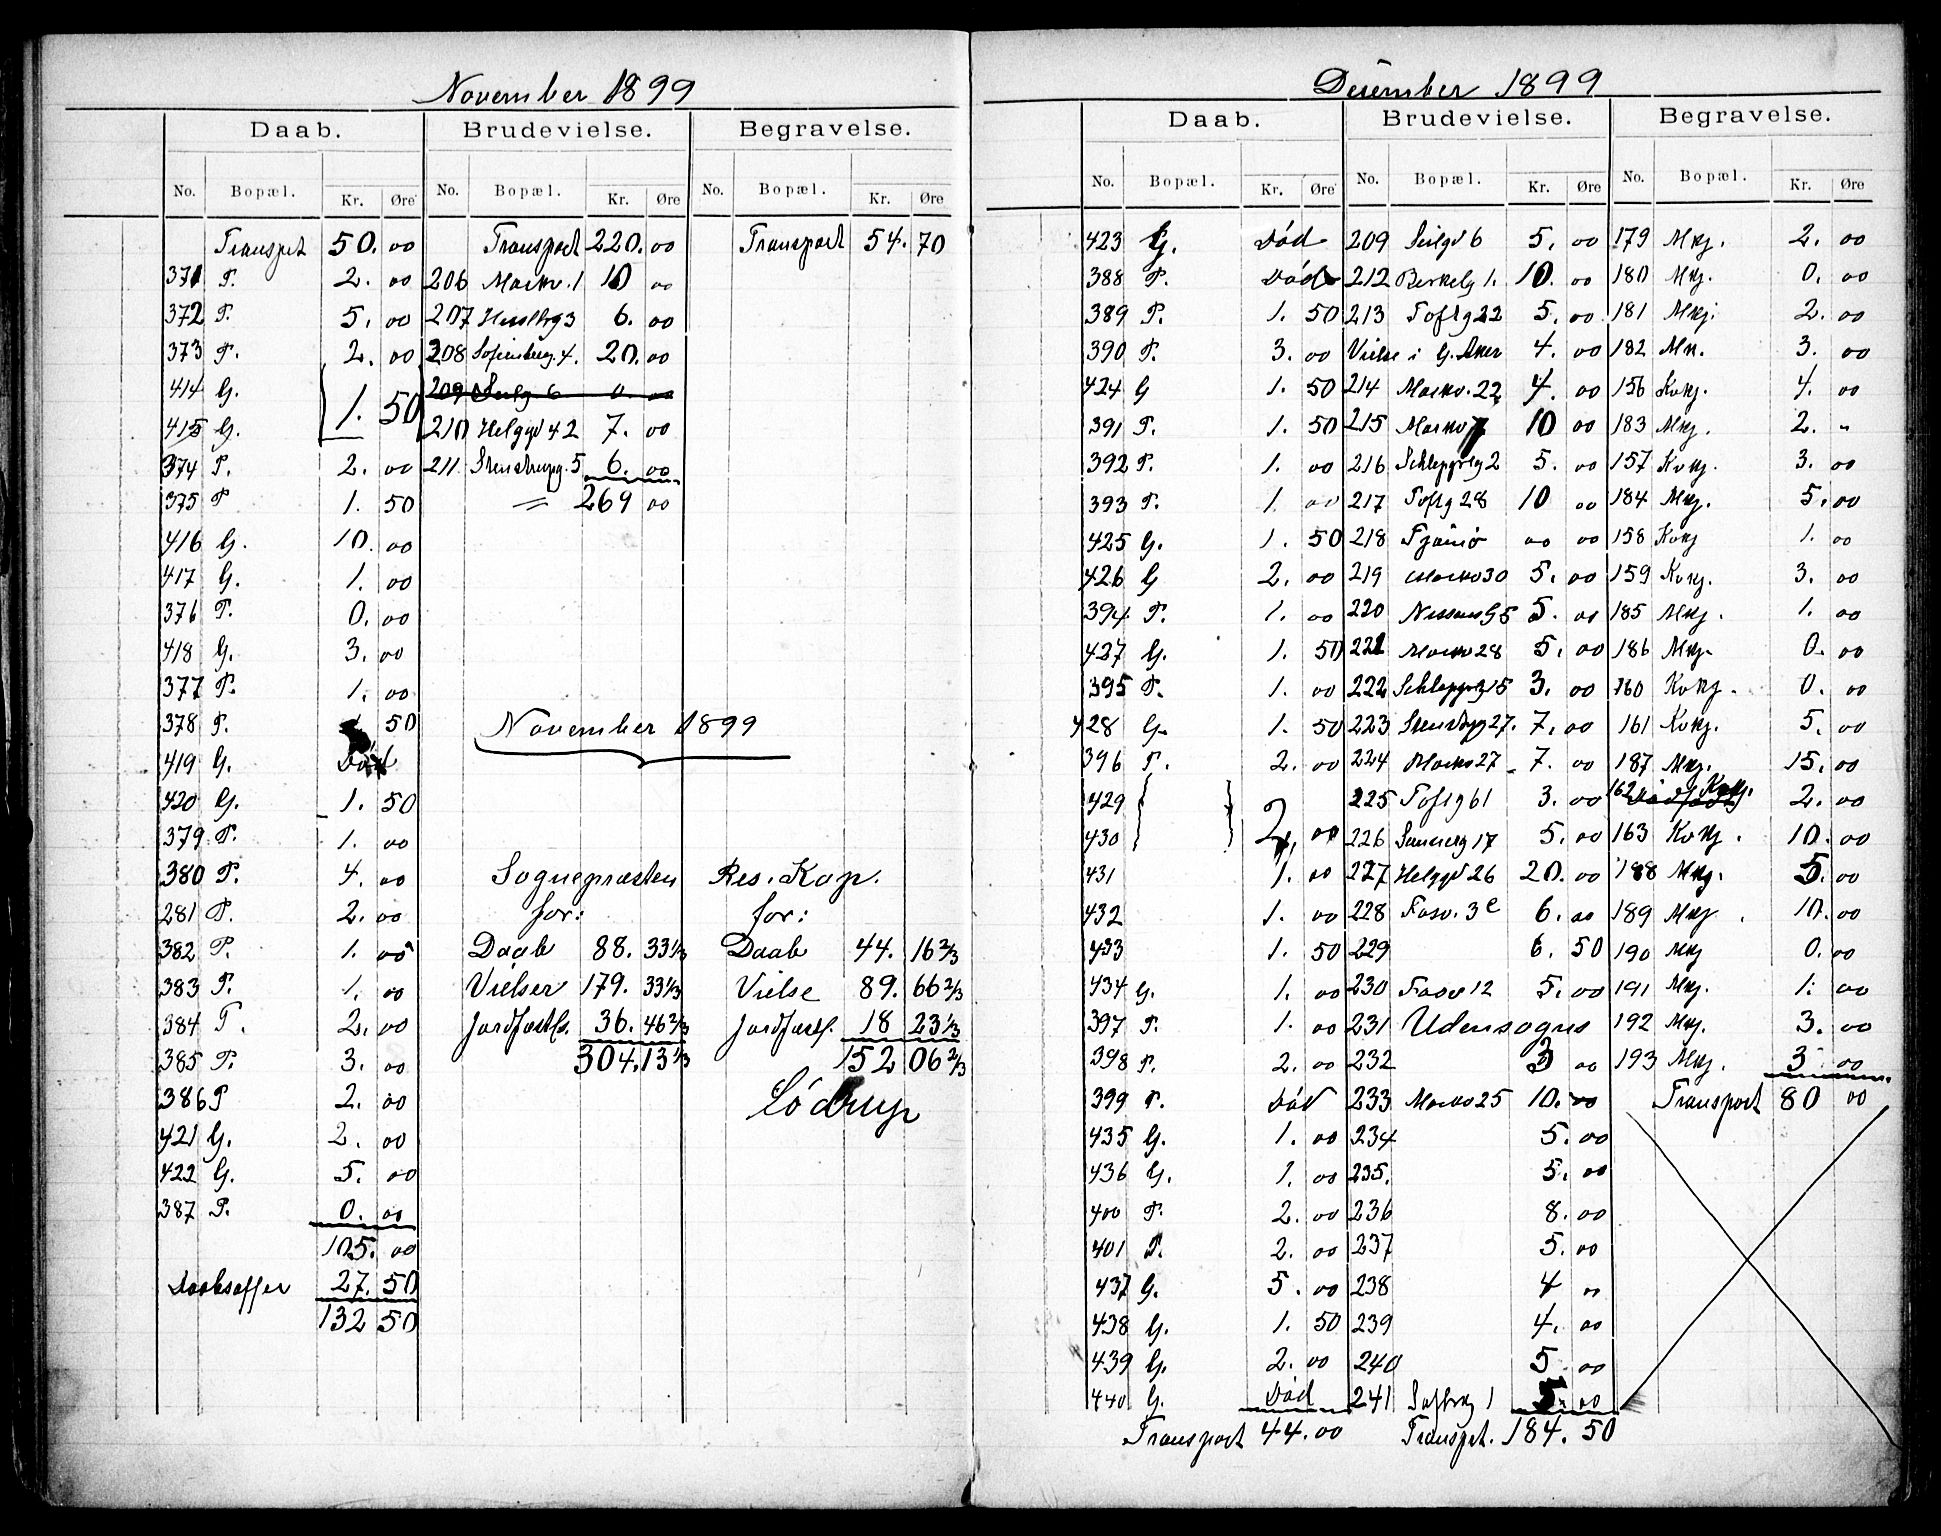 November 1899
Daab. Brudevielse. Begravelse.
No. Bopæl. Kr. Øre No. Bopæl. Kr. Øre No. Bopæl. Kr. Øre
Transpt 50. 00 Transport 220. 00 Transport 54. 70
371 P. 2. 00 206 Markv. 1 10 00
372 P. 5. 00 207 Hesselbg 3 6. 00
373 P. 2. 00 208 Sofienberg. 4. 20. 00
414 G. 209 Seilg 6 0 00
415 G. 1. 50 210 Helggd 42 7. 00
374 P. 2. 00 211. Stenstrupg. 5 6. 00
375 P 1. 50 = 269 00
416 G. 10. 00
417 G. 1. 00
376 P. 0. 00
418 G. 3. 00
377 P. 1. 00
378 P. 50 November 1899
419 G. Död
420 G. 1. 50
379 P. 1. 00
380 P. 4. 00 Sognepræsten Res. Kap.
281 P. 2. 00 for: for:
382 P. 1. 00 Daab 88. 33 1/3 Daab 44. 16 2/3
383 P. 1. 00 Vielser 179. 33 1/3 Vielse 89. 66 2/3
384 P. 2. 00 Jordfæstls. 36. 46 2/3 Jordfæstl. 18 23 1/3
385 P. 3. 00 304. 13 1/3 152 06 2/3
386 P 2. 00 Lödrup
421 G. 2. 00
422 G. 5. 00
387 P. 0. 00
105. 00
Daabsoffer 27. 50
132 50
December 1899
Daab. Brudevielse. Begravelse.
No. Bopæl. Kr. Øre No. Bopæl. Kr. Øre No. Bopæl. Kr. Øre
423 G. Död 209 Seilgd 6 5. 00 179 Mkj. 2. 00
388 P. Död 212 Berkelg 1. 10. 00 180 Mkj. 0. 00
389 P. 1. 50 213 Toftg 22 5. 00 181 Mkj. 2. 00
390 P. 3. 00 Vielse i G. Aker 4. 00 182 Mk. 3. 00
424 G 1. 50 214 Markv. 22 4. 00 156 Kvkj. 4. 00
391 P. 1. 50 215 Markv 10 00 183 Mkj. 2. "
392 P. 1. 00 216 Schleppegg 2 5. 00 157 Kvkj. 3. 00
393 P. 1. 00 217 Toftg 28 10 00 184 Mkj. 5. 00
425 G. 1. 50 218 Tjömö 00 00 158 Kvkj 1. 00
426 G 2. 00 219 Markv 30 5. 00 159 Kvkj. 3. 00
394 P. 1. 00 220 Nissens G 5 5. 00 185 Mkj. 1. 00
427 G. 1. 50 221 Markv 28 5. 00 186 Mkj. 0. 00
395 P. 1. 00 222 Schleppegg 15 3. 00 160 Kvkj. 0. 00
428 G. 1. 50 223 Stensbgg 27. 7. 00 161 Kvkj. 5. 00
396 P. 2. 00 224 Markv 27 7. 00 187 Mkj. 15. 00
429 225 Toftg 61 3. 00 162 Kvkj. 2. 00
430 2. 00 226 Sannerg 17 5. 00 163 Kvkj. 10. 00
431 1. 00 227 Helggd 26 20. 00 188 Mkj. 5. 00
432 1. 00 228 Fosv. 3 e 6. 00 189 Mkj. 10. 00
433 1. 50 229 6. 50 190 Mkj 0. 00
434 G. 1. 00 230 Fosv 12 5. 00 191 Mkj. 1. 00
397 P. 1. 00 231 Udensogns 192 Mkj. 3. 00
398 P. 2. 00 232 3 00 193 Mkj. 3. 00
399 P. Död 233 Markv 25 10. 00 Transport 80 00
435 G. 1. 00 234 5. 00
436 G. 1. 00 235. 5. 00
400 P. 2. 00 236 8. 00
401 P. 2. 00 237 5. 00
437 G. 5. 00 238 4 "
438 G. 1. 50 239 4. 00
439 G. 2. 00 240 5 00
440 G. Död 241 Sofbrg 1 5. 00
Transport 44. 00 Transpt. 184. 50